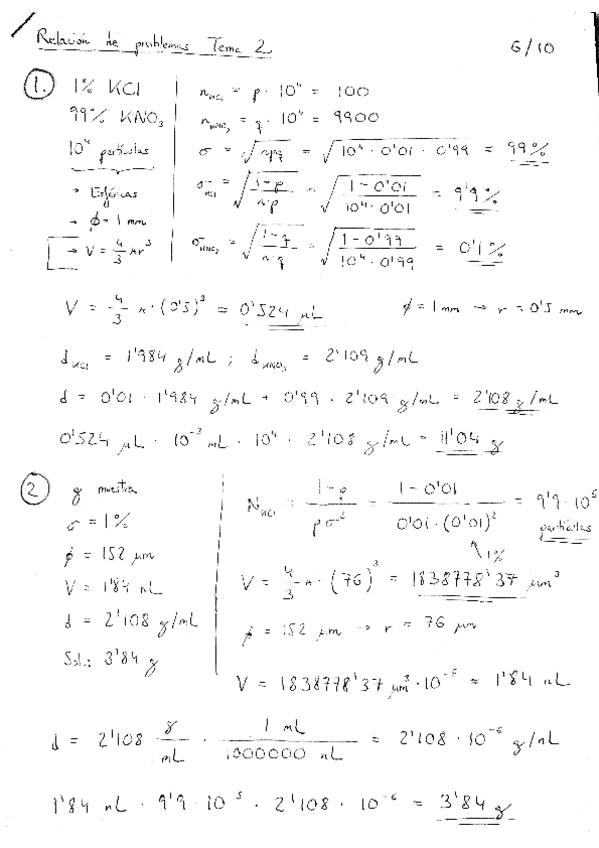 Relación de problemas Tema 2 6/10
1. 1% KCl
99% KNO₃
10⁴ partículas
→ Esféricas
→ ϕ = 1 mm
→ V = 4/3 πr³
n_KCl = p · 10⁴ = 100
n_KNO₃ = q · 10⁴ = 9900
σ = √npq = √10⁴ · 0'01 · 0'99 = 99%
σ_KCl = √(1-p)/(n·p) = √(1-0'01)/(10⁴ · 0'01) = 9'9%
σ_KNO₃ = √(1-q)/(n·q) = √(1-0'99)/(10⁴ · 0'99) = 0'1%
V = 4/3 π · (0'5)³ = 0'524 μL ϕ = 1 mm → r = 0'5 mm
d_KCl = 1'984 g/mL ; d_KNO₃ = 2'109 g/mL
d = 0'01 · 1'984 g/mL + 0'99 · 2'109 g/mL = 2'108 g/mL
0'524 μL · 10⁻³ mL · 10⁴ · 2'108 g/mL = 11'04 g
2 g muestra
σ = 1%
ϕ = 152 μm
V = 1'84 nL
d = 2'108 g/mL
Sol.: 3'84 g
N_KCl = (1-p)/(pσ²) = (1-0'01)/(0'01 · (0'01)²) = 9'9 · 10⁵
partículas
1%
V = 4/3 π · (76)³ = 1838778'37 μm³
ϕ = 152 μm → r = 76 μm
V = 1838778'37 μm³ · 10⁻⁶ = 1'84 nL
d = 2'108 g/mL · 1 mL/1000000 nL = 2'108 · 10⁻⁶ g/nL
1'84 nL · 9'9 · 10⁵ · 2'108 · 10⁻⁶ = 3'84 g